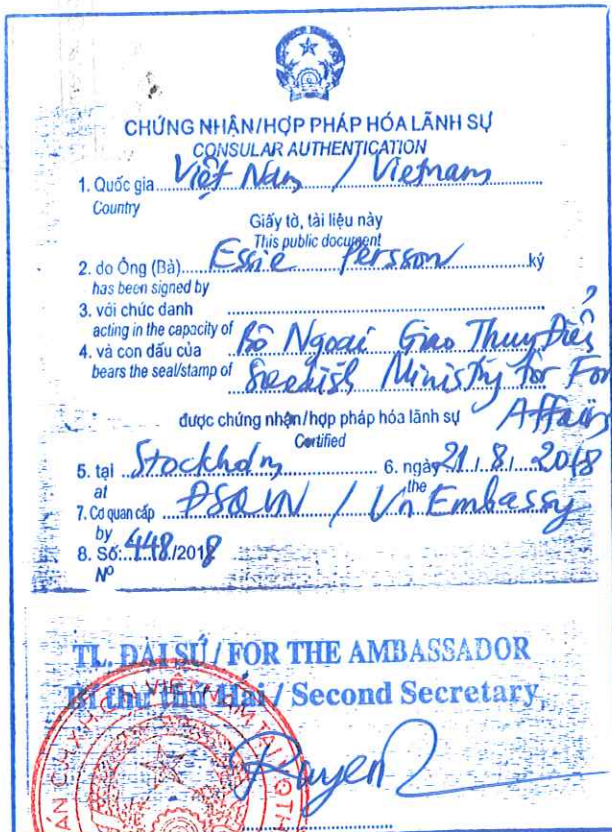 CHỨNG NHẬN/HỢP PHÁP HÓA LÃNH SỰ
CONSULAR AUTHENTICATION
1. Quốc gia Việt Nam / Vietnam
Country
Giấy tờ, tài liệu này
This public document
2. do Ông (Bà) Essie Persson ký
has been signed by
3. với chức danh
acting in the capacity of
4. và con dấu của Bộ Ngoại Giao Thụy Điển
bears the seal/stamp of Swedish Ministry for For
Affairs
được chứng nhận/hợp pháp hóa lãnh sự
Certified
5. tại Stockholm 6. ngày 21.8.2018
at the
7. Cơ quan cấp ĐSQVN / Vn Embassy
by
8. Số: 448/2018
Nº
TL. ĐẠI SỨ / FOR THE AMBASSADOR
Bí thư thứ Hai / Second Secretary